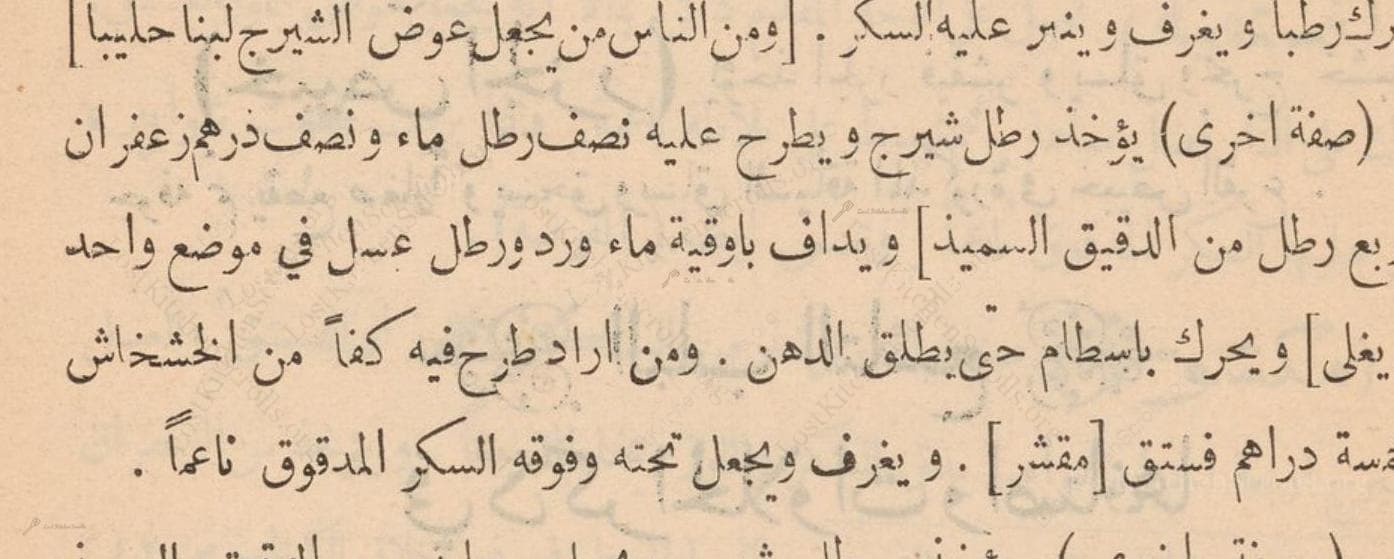 رك رطبا و يغرف و ينثر عليه السكر . [ومن الناس من يجعل عوض الشيرج لبنا حليبا]
(صفة اخرى) يؤخذ رطل شيرج و يطرح عليه نصف رطل ماء و نصف درهم زعفران
بع رطل من الدقيق السميذ] و يداف باوقية ماء ورد ورطل عسل في موضع واحد
يغلى] و يحرك باسطام حتى يطلق الدهن . ومن اراد طرح فيه كفاً من الخشخاش
سة دراهم فستق [مقشر] . و يغرف ويجعل تحته وفوقه السكر المدقوق ناعماً .